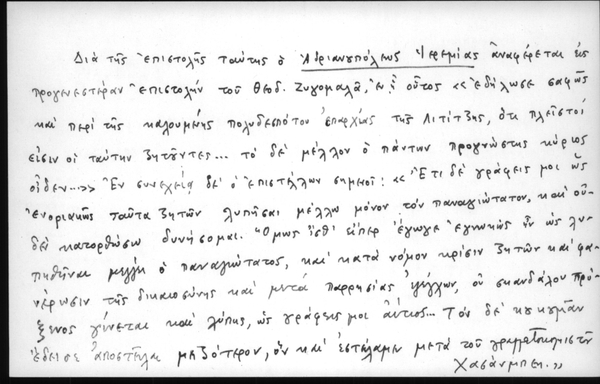 Διὰ τῆς ἐπιστολῆς ταύτης ὁ Ἀδριανουπόλεως Ἱερεμίας ἀναφέρεται εἰς
προγενεστέραν ἐπιστολὴν τοῦ Θεοδ. Ζυγομαλᾶ, ἐν ᾗ οὗτος «ἐδήλωσε σαφῶς
καὶ περὶ τῆς καλουμένης πολυδεσπότου ἐπαρχίας τῆς Λιτίτζης, ὅτι πλεῖστοί
εἰσιν οἱ ταύτην ζητοῦντες... τὸ δὲ μέλλον ὁ πάντων προγνώστης κύριος
οἶδεν...» Ἐν συνεχείᾳ δὲ ὁ ἐπιστέλλων σημειοῖ: «Ἔτι δὲ γράφεις μοι ὡς
ἐνοριακῆς ταῦτα ζητῶν λυπῆσαι μέλλω μόνον τὸν παναγιώτατον, καὶ οὐ-
δὲ κατορθώσω δυνήσομαι. Ὅμως ἴσθι εἴπερ ἔγωγε ἐγνωκὼς ἦν ὡς λυ-
πηθῆναι μέλλῃ ὁ παναγιώτατος, καὶ κατὰ νόμον κρίσιν ζητῶν καὶ φα-
νέρωσιν τῆς δικαιοσύνης καὶ μετὰ παρρησίας ἐλέγχων, οὐ σκανδάλου πρό-
ξενος γίνεται καὶ λύπης, ὡς γράφεις μοι αἴτιος... Τὸν δὲ
ἔδεισε ἀποστεῖλαι μαζότερον, ὃν καὶ ἐστείλαμεν μετὰ τοῦ γραμματοκομιστοῦ
Χασάνμπεη.»